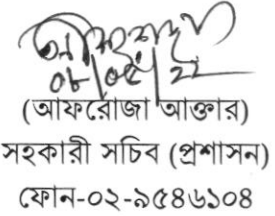 ০৮/০৫/২২
(আফরোজা আক্তার)
সহকারী সচিব (প্রশাসন)
ফোন-০২-৯৫৪৬১০৪